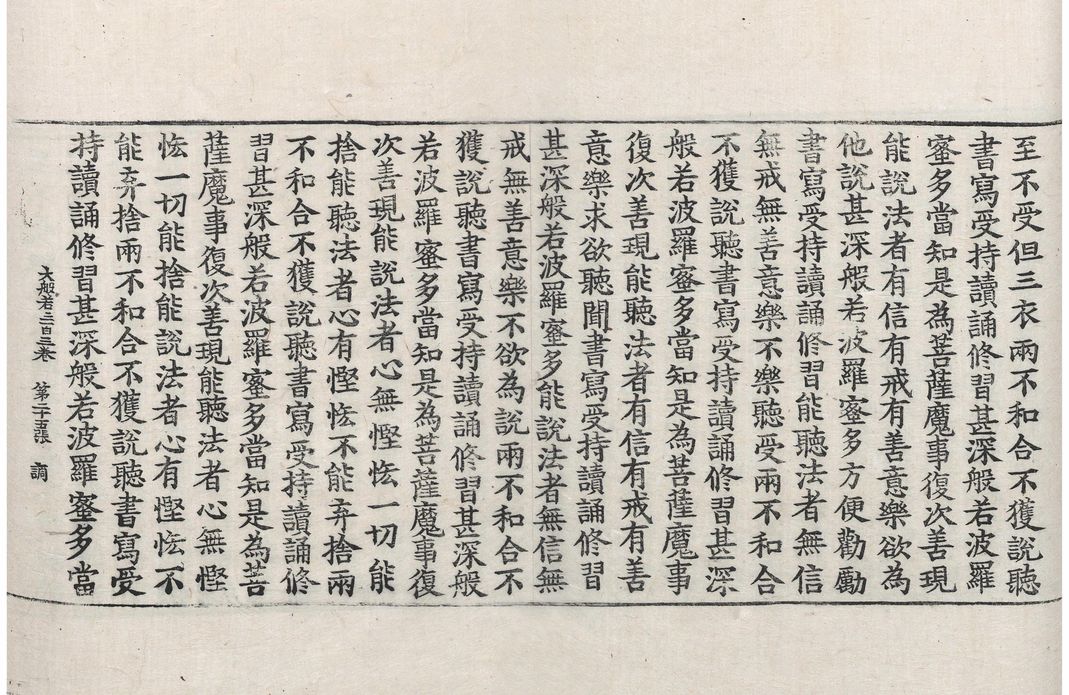 至不受但三衣兩不和合不獲說聽
書寫受持讀誦修習甚深般若波羅
蜜多當知是為菩薩魔事復次善現
能說法者有信有戒有善意樂欲為
他說甚深般若波羅蜜多方便勸勵
書寫受持讀誦修習能聽法者無信
無戒無善意樂不樂聽受兩不和合
不獲說聽書寫受持讀誦修習甚深
般若波羅蜜多當知是為菩薩魔事
復次善現能聽法者有信有戒有善
意樂求欲聽聞書寫受持讀誦修習
甚深般若波羅蜜多能說法者無信無
戒無善意樂不欲為說兩不和合不
獲說聽書寫受持讀誦修習甚深般
若波羅蜜多當知是為菩薩魔事復
次善現能說法者心無慳悋一切能
捨能聽法者心有慳悋不能弃捨兩
不和合不獲說聽書寫受持讀誦修
習甚深般若波羅蜜多當知是為菩
薩魔事復次善現能聽法者心無慳
悋一切能捨能說法者心有慳悋不
能弃捨兩不和合不獲說聽書寫受
大般若三百三卷 第二十五張 調
持讀誦修習甚深般若波羅蜜多當